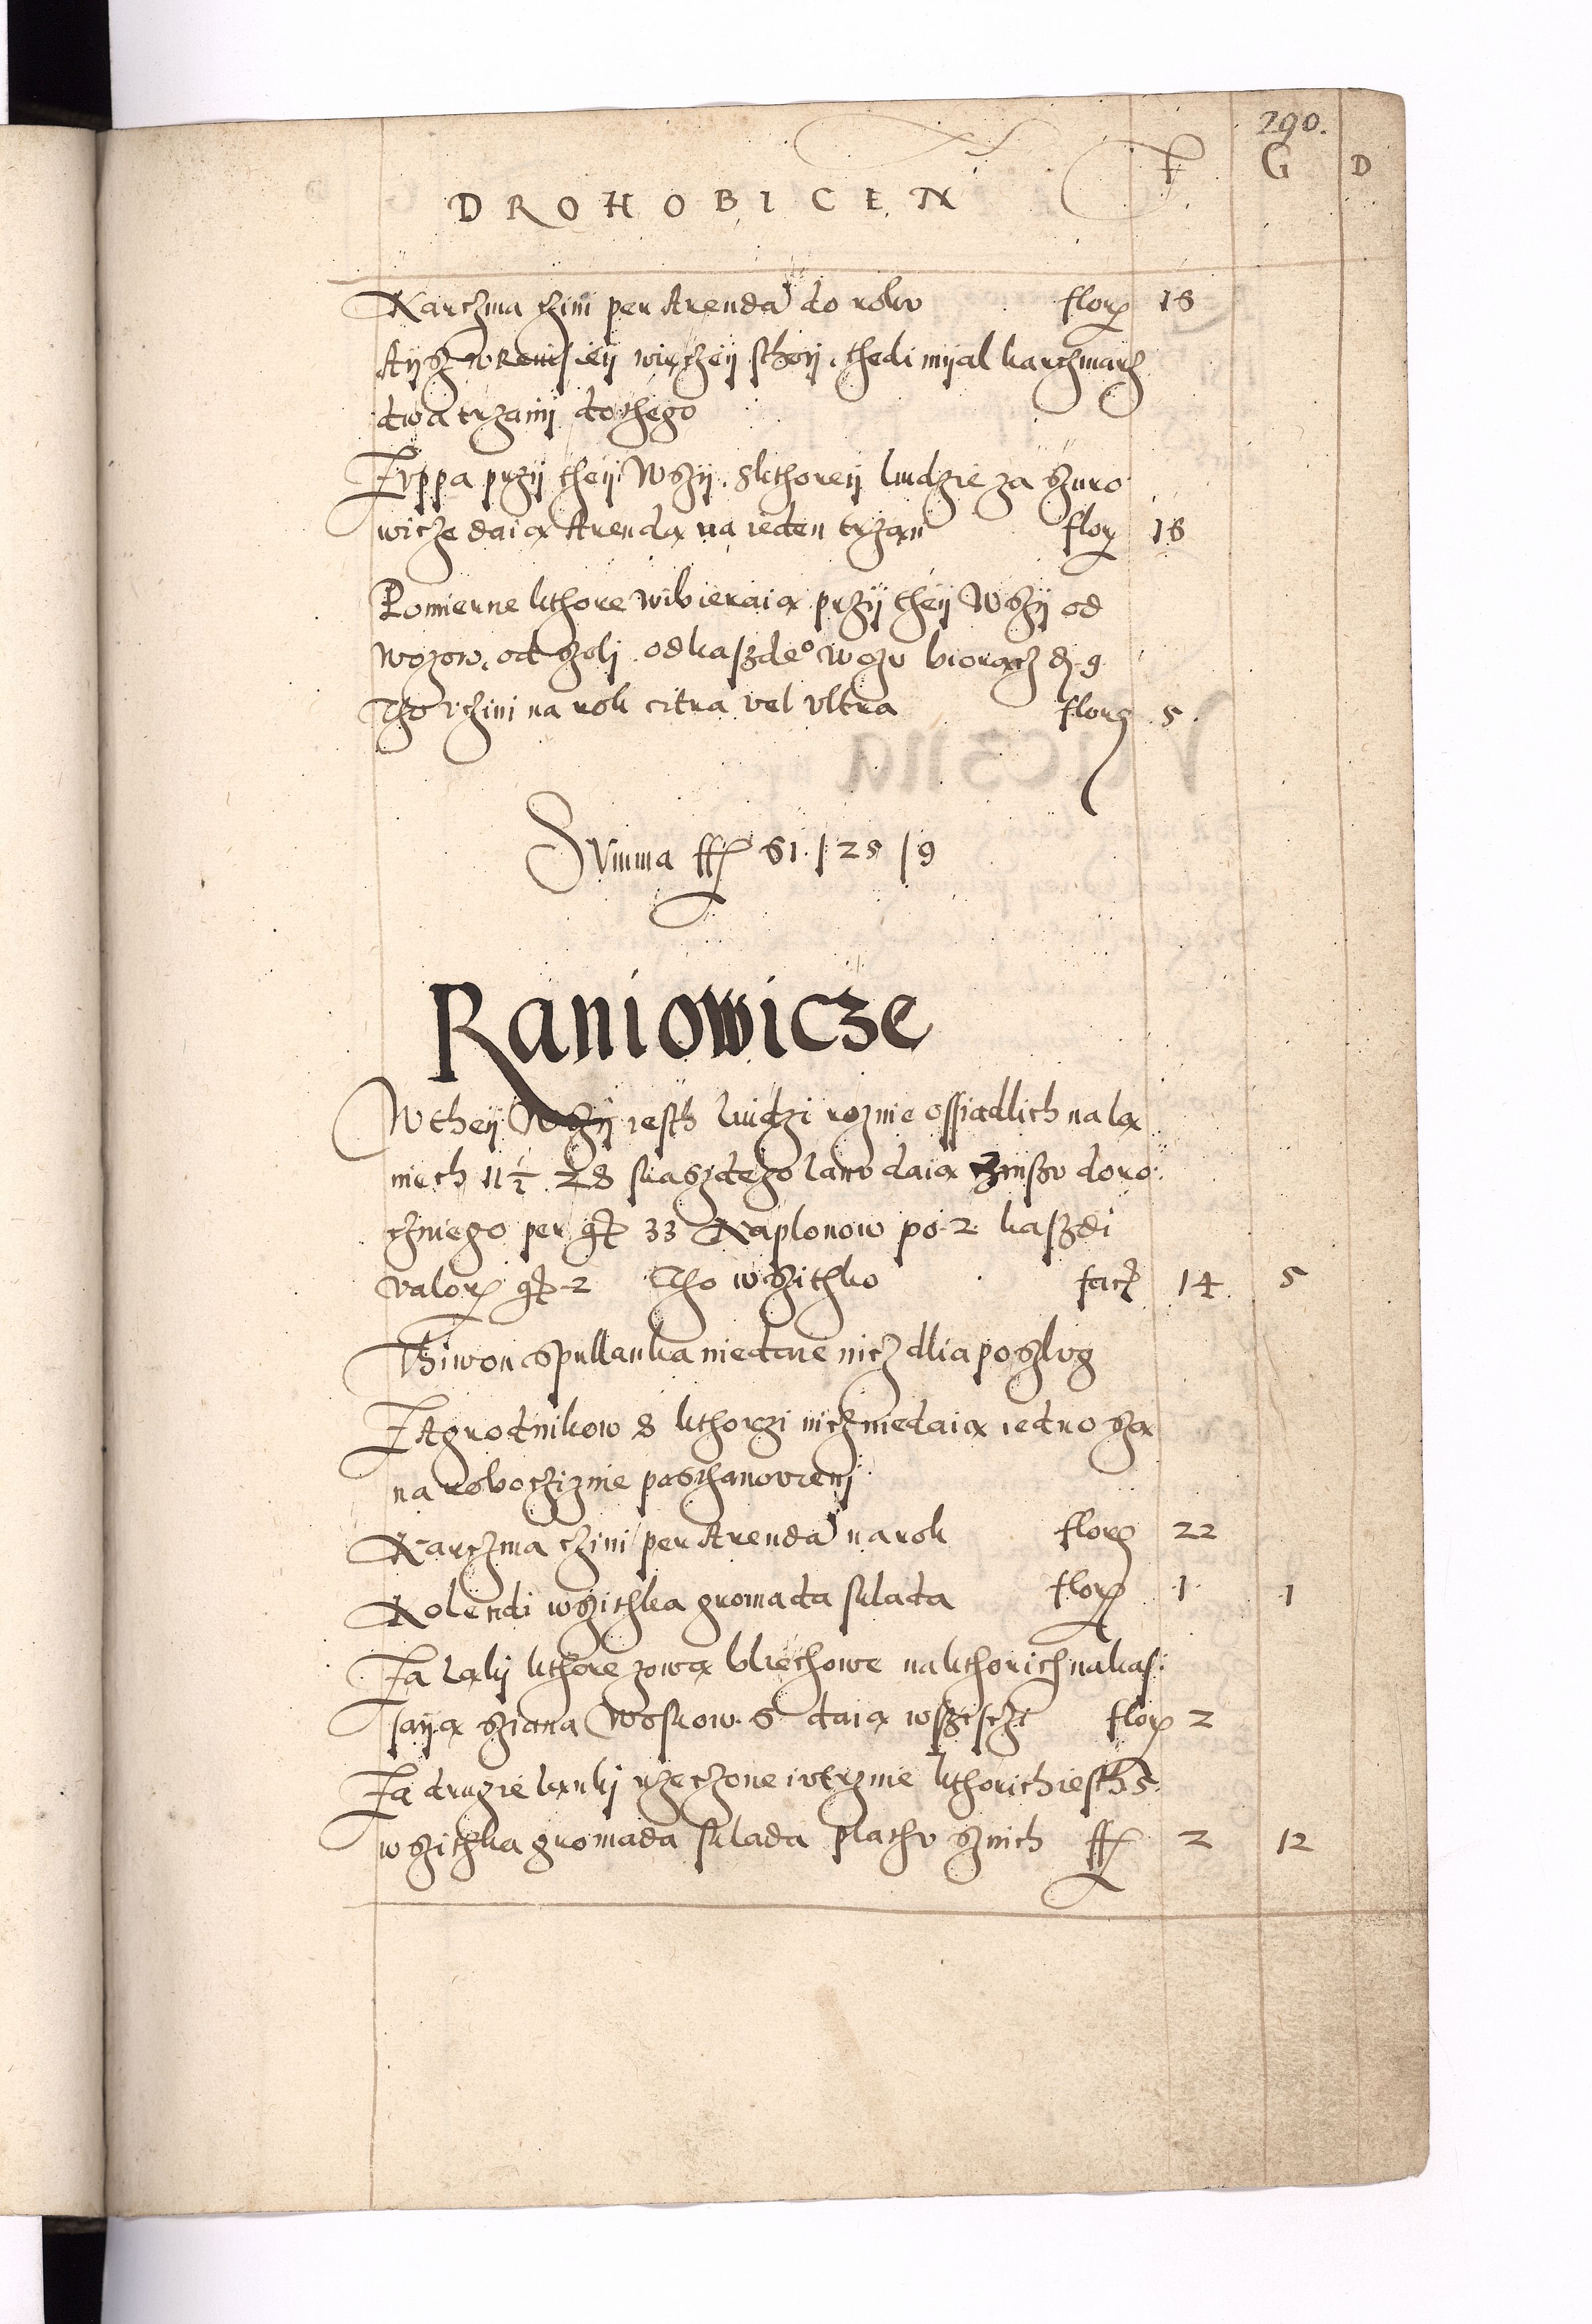 290.
F G D
DROHOBICEN
Karczma czini per Arendą do roku floren 16
A ysz w Rewisiey wiczey stoy, thedi myal karczmarz
dwa trzanij do thego
Zvppa przÿ theÿ Wszÿ, skthoreÿ ludzie za Szuro
wicze daią Arendą na ieden trzan floren 16
Pomierne kthore wibieraią przÿ theÿ Wszÿ od
wozow, od Szoli od kaszdeo wozu biorącz d. 9
Tho czini na rok citra vel vltra floren 5
Svmma ff 61 / 25 / 9
Raniowicze
W theÿ Wszÿ iesth ludzi roznie ossiadlich na la
niech 11½ Z8 skaszdego lanu daią czinszu doro
cznego per gr 33 Kaplonow po 2 kaszdi
valor gr 2 Tho wszithko facit 14 5
Thiwon Spullanka niedaie nicz dlia poszlug
Zagrodnikow 8 kthorzi nicz niedaią iedno są
na robocziznie postanowieni
Karczma czini per Arendą na rok floren 22
Kolendi wszithka gromada sklada floren 1 1
Za ląki kthore zową blechowe na kthorich nakas
saÿą Sziana Woskow 6 daią wszisczi floren 2
Za drugie ląnki rzeczone kthorich iesth 5
wszithka gromada sklada plathv sznich ff 2 12